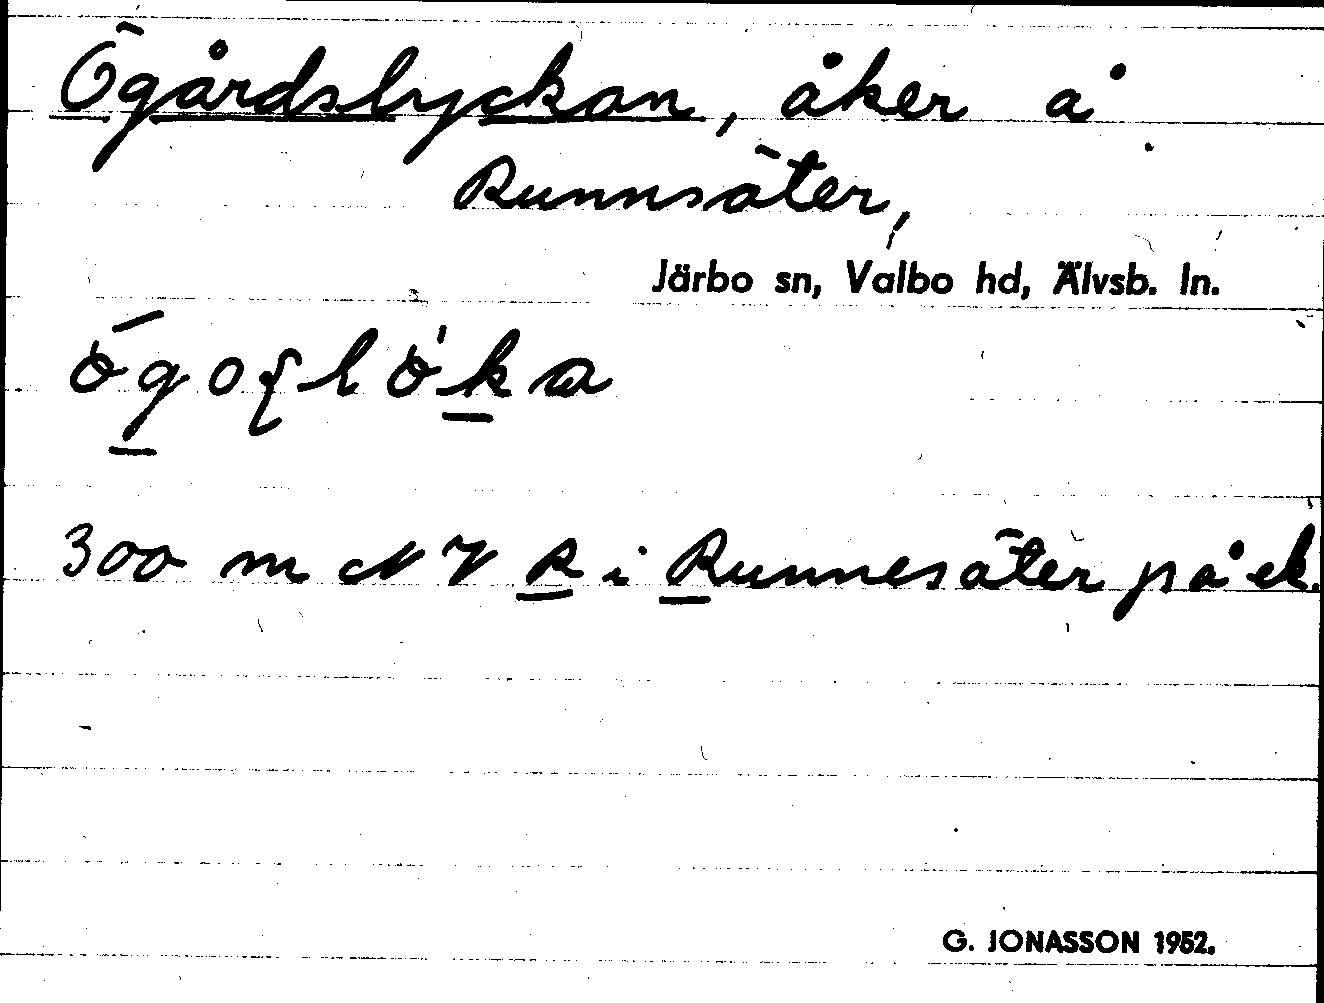 Ögårdslyckan, åker å
Runnsäter,
Järbo sn, Valbo hd, Älvsb. ln.
300 m NV R i Runnesäter på ek.
G. JONASSON 1952.